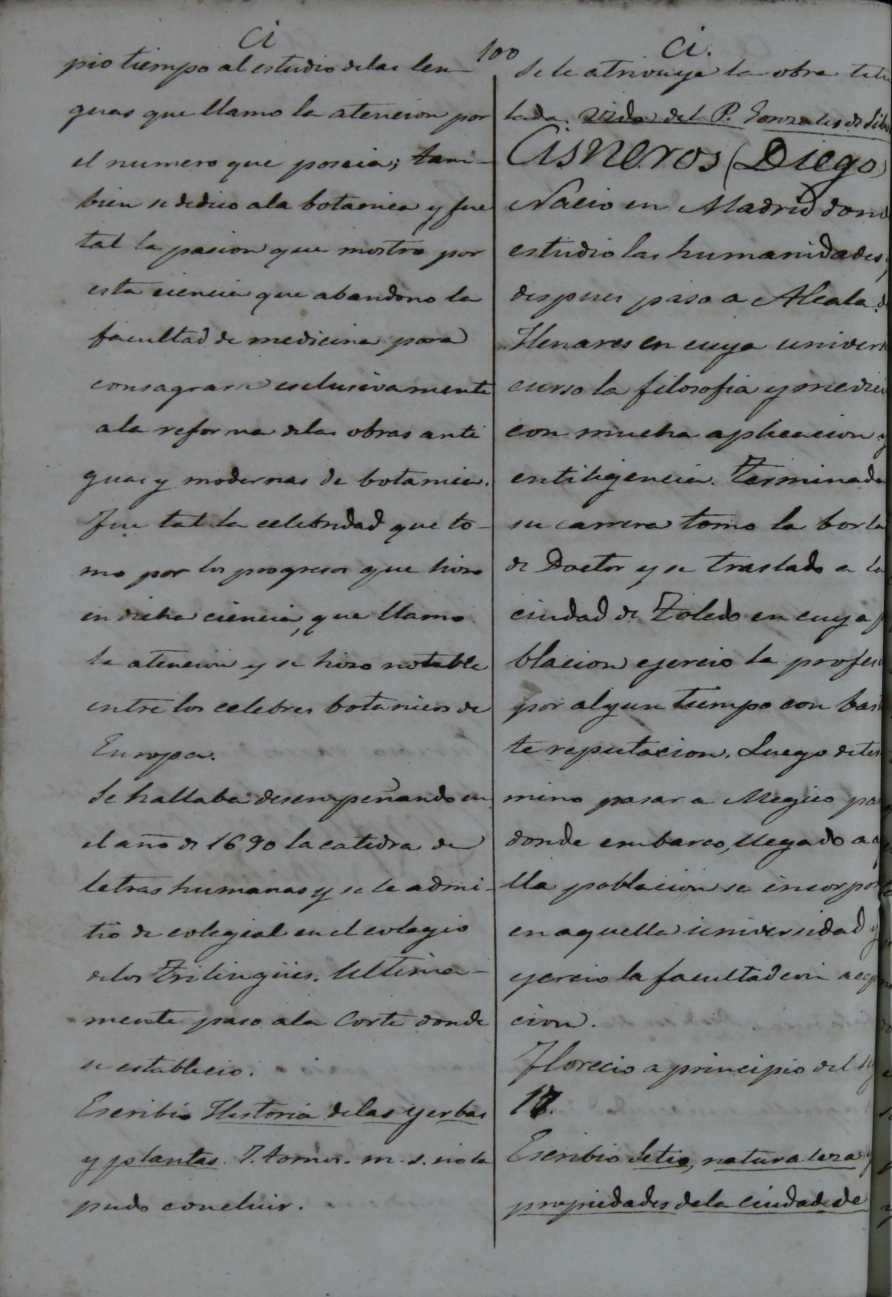 Ci
100
Ci.
pio tiempo al estudio delas len-
guas que llamo la atencion por
el numero que poseia; tam-
bien se dedico ala botanica y fue
tal la pasion que mostro por
esta ciencia que abandono la
facultad de medicina para
consagrarse esclusivamente
ala reforma delas obras anti
guas y modernas de botanica.
Fue tal la celebridad que to-
mo por los progresos que hizo
en dicha ciencia, que llamo
la atencion y se hizo notable
entre los celebres botanicos de
Europa.
Se hallaba desempeñando en
el año de 1690 la catedra de
letras humanas y se le admi-
tio de colegial en el colegio
delos Trilingües. Ultima-
mente paso ala Corte donde
se establecio.
Escribio Historia delas yerbas
y plantas. 7. tomos. m. s. no la
pudo concluir.
se le atrivuye la obra titu
lada. vida del P. Gonzales de
Cisneros (Diego)
Nacio en Madrid dond
estudio las humanidades y
despues paso a Alcala d
Henares en cuya univers
curso la filosofia y medici
con mucha aplicacion y
entiligencia. Terminada
su carrera tomo la borla
de Doctor y se traslado a la
ciudad de Toledo en cuya p
blacion ejercio la profes
por algun tiempo con bas
te reputacion. Luego deter
mino pasar a Megico pa
donde embarco, llegado a aq
lla poblacion se incorpo
en aquella universidad y
ejercio la facultad con acep
cion.
Florecio a principio del si
17.
Escribio Sitio, naturaleza y
propiedades dela ciudad de